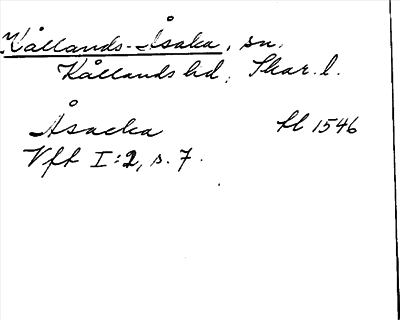 Kållands-Åsaka, sn.
Kållands hd, Skar. l.
Åsacka tl 1546
Vft I:2, s. 7.